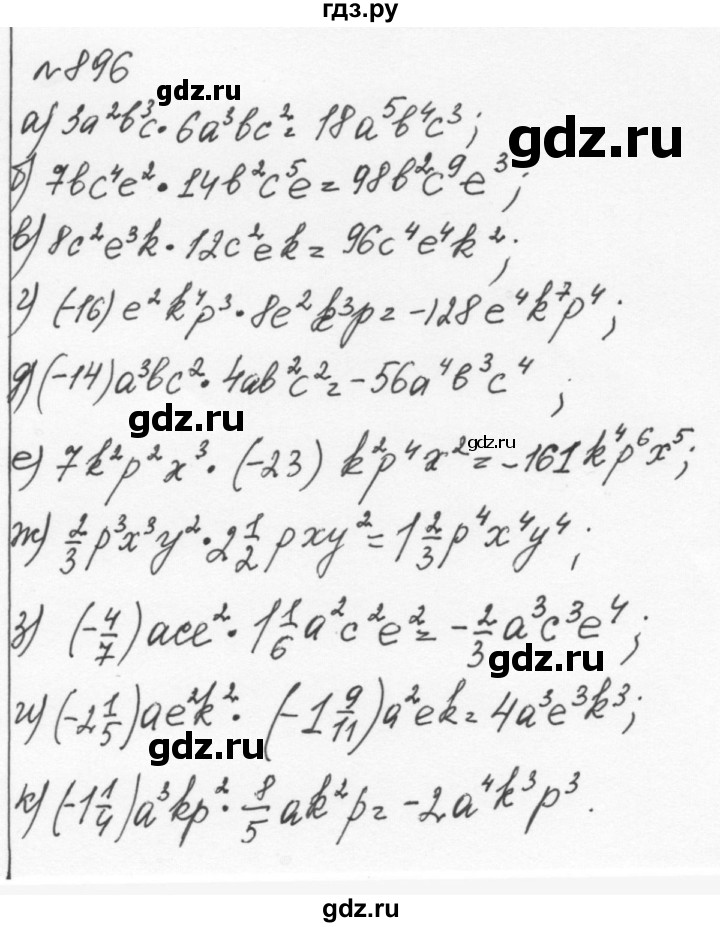 гдз.ру
№896
gdz.ru
а) 3a²b³c · 6a³bc² = 18a⁵b⁴c³;
gdz.ru
б) 7bc⁴e² · 14b²c⁵e = 98b²c⁹e³;
в) 8c²e³k · 12c²ek = 96c⁴e⁴k²;
г) (-16)e²k⁴p³ · 8e²k³p = -128e⁴k⁷p⁴;
д) (-14)a³bc² · 4ab²c² = -56a⁴b³c⁴;
gdz.ru
gdz.ru
е) 7k²p²x³ · (-23) k²p⁴x² = -161k⁴p⁶x⁵;
ж) 2/3 p³x³y² · 2 1/2 pxy² = 1 2/3 p⁴x⁴y⁴;
з) (-4/7)ace² · 1 1/6 a²c²e² = -2/3 a³c³e⁴;
gdz.ru
и) (-2 1/5)ae²k² · (-1 9/11)a²ek = 4a³e³k³;
gdz.ru
к) (-1 1/4)a³kp² · 8/5 ak²p = -2a⁴k³p³.
gdz.ru